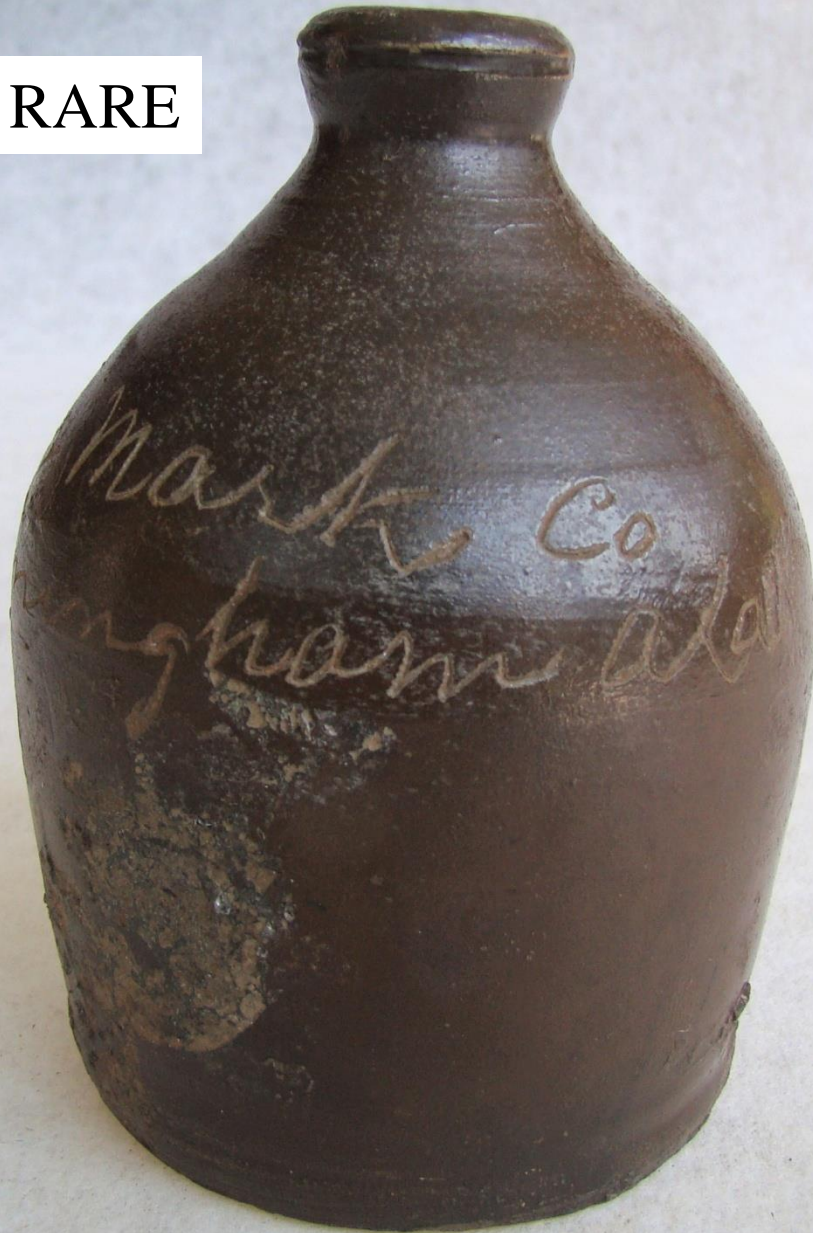 RARE
Mark Co
ingham ala